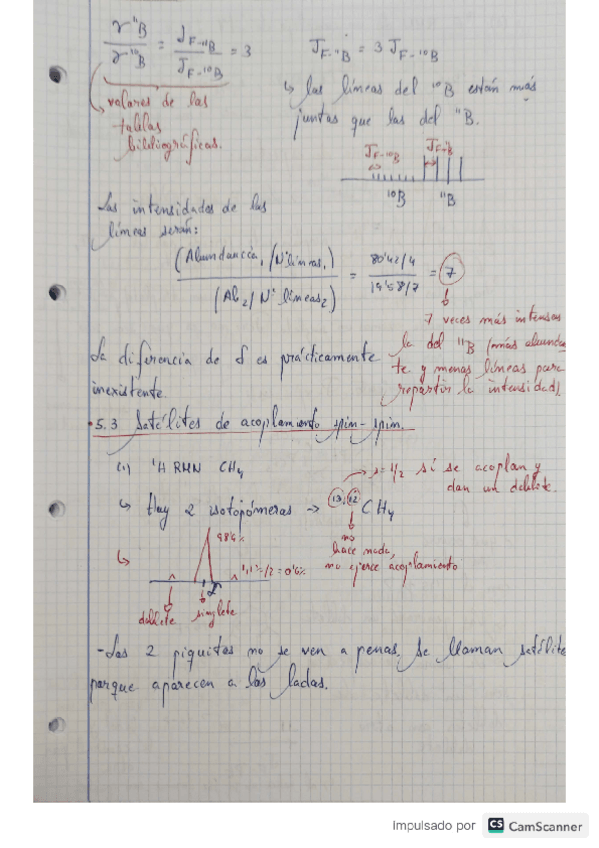 γ ¹¹B / γ ¹⁰B = J F-¹¹B / J F-¹⁰B = 3
J F-¹¹B = 3 J F-¹⁰B
valores de las
tablas
bibliográficas.
↳ las líneas del ¹⁰B están más
juntas que las del ¹¹B.
J F-¹⁰B J F-¹¹B
¹⁰B ¹¹B
Las intensidades de las
líneas serán:
(Abundancia₁/Nº líneas₁) / (Ab₂/Nº líneas₂) = 80'42/4 / 19'58/7 = 7
7 veces más intensas
la del ¹¹B (más abundan
te y menos líneas para
repartir la intensidad).
La diferencia de δ es prácticamente
inexistente.
• 5.3 Satélites de acoplamiento spin-spin.
(1) ¹H RMN CH₄
→ s=1/2 sí se acoplan y
dan un doblete.
↳ Hay 2 isotopómeros → ¹³,¹²CH₄
no
hace nada,
no ejerce acoplamiento
↳
1,1%/2 = 0'6%
doblete singlete
-Los 2 piquitos no se ven a penas. Se llaman satélite
porque aparecen a los lados.
Impulsado por CS CamScanner